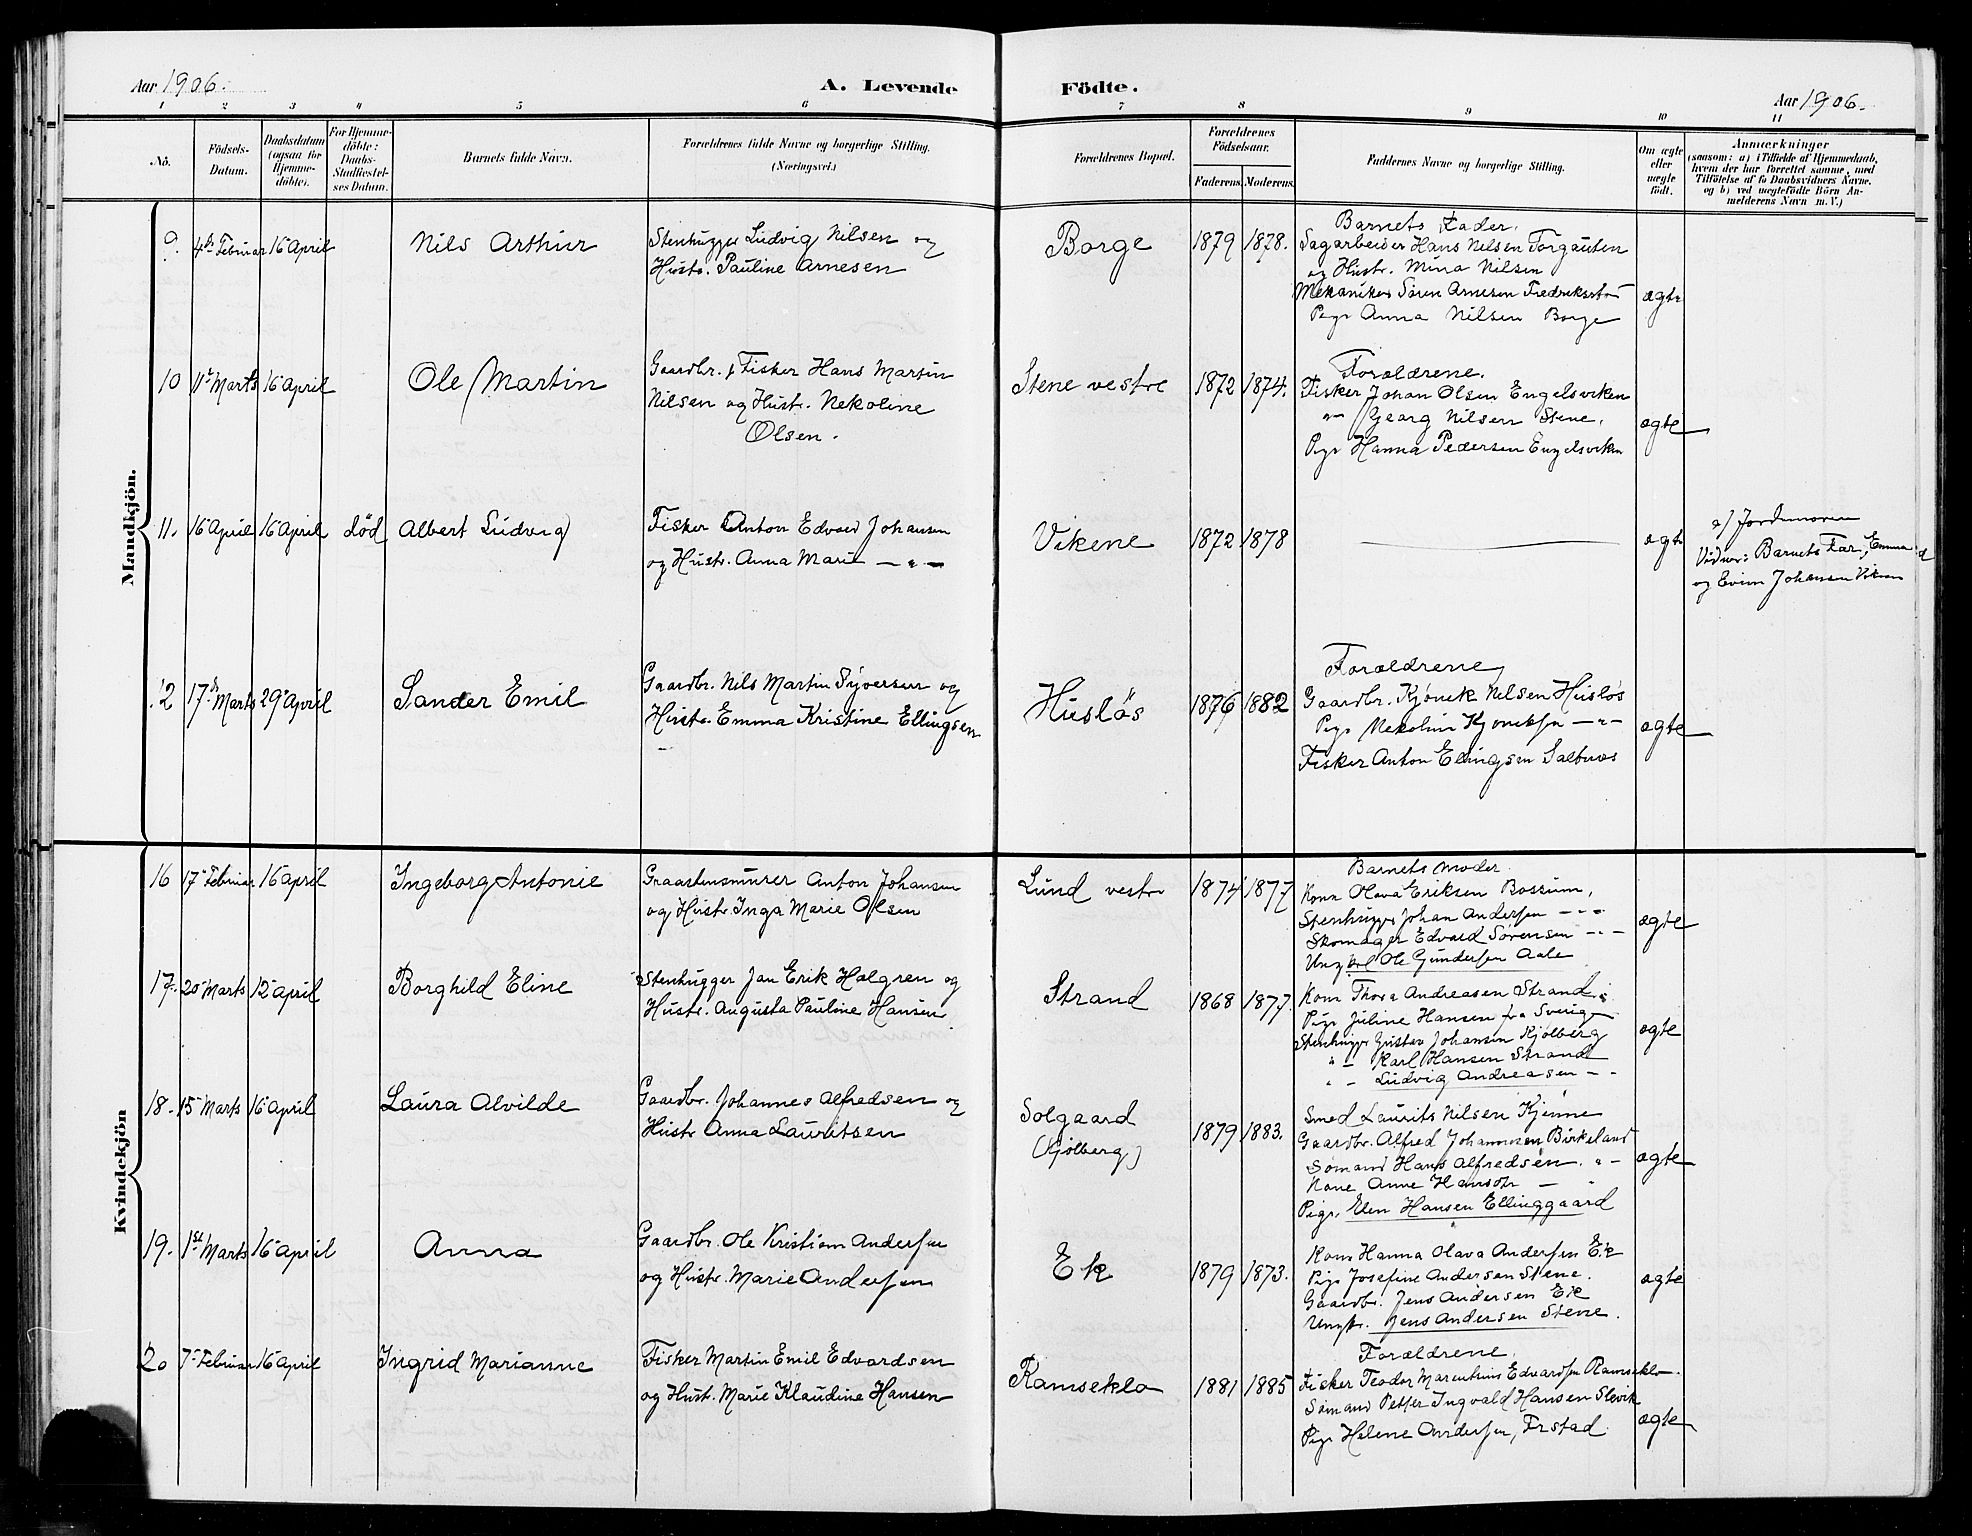 Aar 1906.
A. Levende Födte.
Aar 1906.
1 2 3 4 5 6 7 8 9 10 11
No.
Födsels-Datum.
Daabsdatum (ogsaa for Hjemme-döbte).
For Hjemme-döbte: Daabs-Stadfæstel-ses Datum.
Barnets fulde Navn.
Forældrenes fulde Navne og borgerlige Stilling. (Næringsvei.)
Forældrenes Bopæl.
Forældrenes Födselsaar.
Faderens. Moderens.
Faddernes Navne og borgerlige Stilling.
Om ægte eller uægte födt.
Anmærkninger
(saasom: a) i Tilfælde af Hjemmedaab, hvem der har forrettet samme, med Tilföielse af to Daabsvidners Navne, og b) ved uægtefödte Börn An-melderens Navn m. V.)
Mandkjön.
9. 4de Februar 16 April
Nils Arthur
Stenhugger Ludvig Nilsen og
Hustr. Pauline Arnesen
Borge
1879 1878.
Barnets Fader.
Sagarbeider Hans Nilsen Torgauten
og Hustr. Mina Nilsen
Mekaniker Sören Arnesen Fredriksstad
Pige Anna Nilsen Borge
ægte
10 11te Marts 16 April
Ole Martin
Gaardbr. & Fisker Hans Martin
Nilsen og Hustr. Nekoline
Olsen.
Stene vestre
1872 1874.
Forældrene.
Fisker Johan Olsen Engelsviken
" Georg Nilsen Stene,
Pige Hanna Pedersen Engelsviken
ægte
11. 16 April 16 April död
Albert Ludvig
Fisker Anton Edvard Johansen
og Hustr. Anna Marie — " —
Vikene
1872 1878
ægte
a) Jordmoren
Vidner: Barnets Far, Emma
og Johansen Viken
12 17de Marts 29 April
Sander Emil
Gaardbr. Nils Martin Syversen og
Hustr. Emma Kristine Ellingsen
Huslös
1876 1882
Forældrene
Gaardbr. Kjönik Nilsen Huslös
Pige Nekolin — " —
Fisker Anton Ellingsen Saltnes
ægte
Kvindekjön
16 17 Februar 16 April
Ingeborg Antonie
Graastensmurer Anton Johansen
og Hustr. Inga Marie Olsen
Lund vestre
1874 1877
Barnets Moder
Kone Olava Eriksen Bossum,
Stenhugger Johan Andersen — " —
Skomager Edvard Sørensen — " —
Ungkrl Ole Gundersen Aale
ægte
17. 20 Marts 12 April
Borghild Eline
Stenhugger Jan Erik Halgren og
Hustr. Augusta Pauline Hansen
Strand
1868 1877.
Kone Thora Andreasen Strand
Pige Juline Hansen fra Sverige
Stenhugger Gustav Johansen Kjölberg
" — Karl Hansen Strand
" — Ludvig Andreasen — " —
ægte
18. 15 Marts 16 April
Laura Alvilde
Gaardbr. Johannes Alfredsen og
Hustr Anna Lauritsen
Solgaard
(Kjölberg)
1879 1883.
Smed Laurits Nilsen Kjenne
Gaardbr. Alfred Johannesen Birkeland
Sömand Hans Alfredsen. " —
Kone Anne Hansdtr — "
Pige. Elen Hansen Ellinggaard
ægte
19. 1st Marts 16 April
Anna
Gaardbr. Ole Kristian Andersen
og Hustr. Marie Andersen
Ek
1879 1873.
Kone Hanna Olava Andersen Ek
Pige Josefine Andersen Stene.
Gaardbr. Jens Andersen Ek
Ungkr. Jens Andersen Stene.
ægte
20 7 Februar 16 April
Ingrid Marianne
Fisker Martin Emil Edvardsen
og Hust. Marie Klaudine Hansen
Ramseklo
1881 1885
Forældrene
Fisker Teodor Edvardsen Ramseklo
Sömand Petter Ingvald Hansen Slevik
Pige Helene Andersen, Frstad
ægte